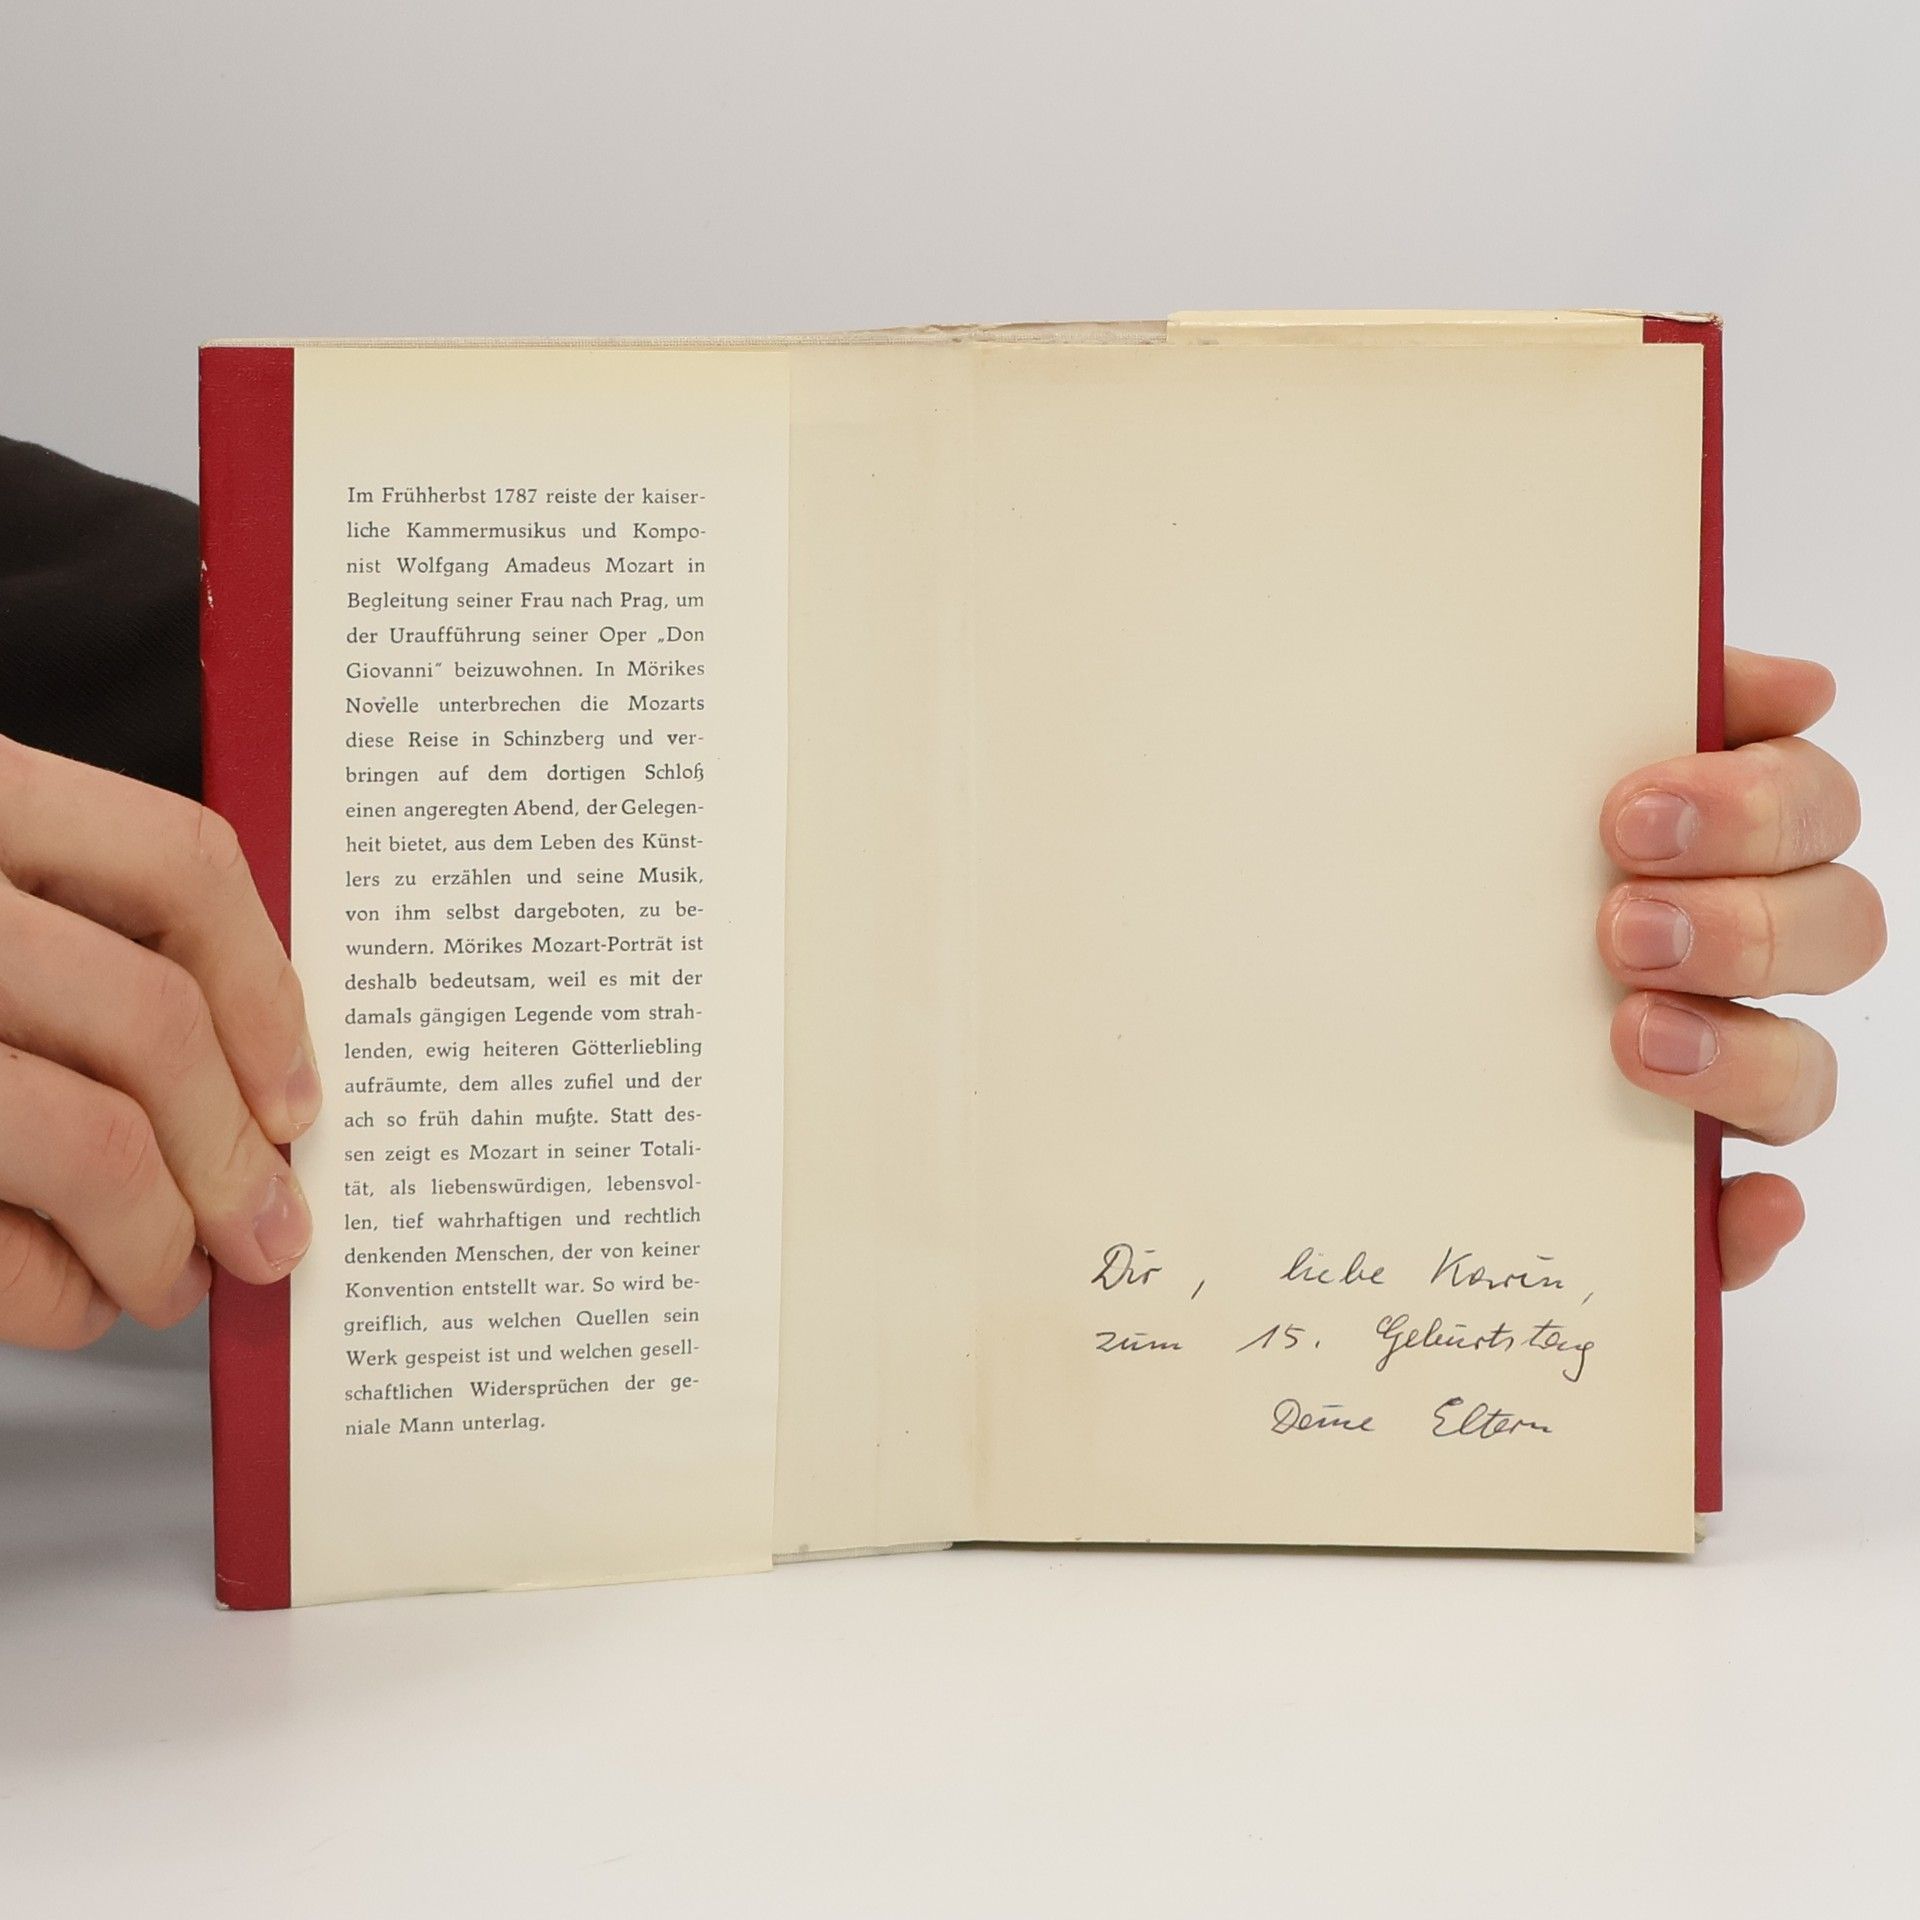 Im Frühherbst 1787 reiste der kaiser-
liche Kammermusikus und Kompo-
nist Wolfgang Amadeus Mozart in
Begleitung seiner Frau nach Prag, um
der Uraufführung seiner Oper „Don
Giovanni“ beizuwohnen. In Mörikes
Novelle unterbrechen die Mozarts
diese Reise in Schinzberg und ver-
bringen auf dem dortigen Schloß
einen angeregten Abend, der Gelegen-
heit bietet, aus dem Leben des Künst-
lers zu erzählen und seine Musik,
von ihm selbst dargeboten, zu be-
wundern. Mörikes Mozart-Porträt ist
deshalb bedeutsam, weil es mit der
damals gängigen Legende vom strah-
lenden, ewig heiteren Götterliebling
aufräumte, dem alles zufiel und der
ach so früh dahin mußte. Statt des-
sen zeigt es Mozart in seiner Totali-
tät, als liebenswürdigen, lebensvol-
len, tief wahrhaftigen und rechtlich
denkenden Menschen, der von keiner
Konvention entstellt war. So wird be-
greiflich, aus welchen Quellen sein
Werk gespeist ist und welchen gesell-
schaftlichen Widersprüchen der ge-
niale Mann unterlag.
Dir, liebe Karin,
zum 15. Geburtstag
Deine Eltern